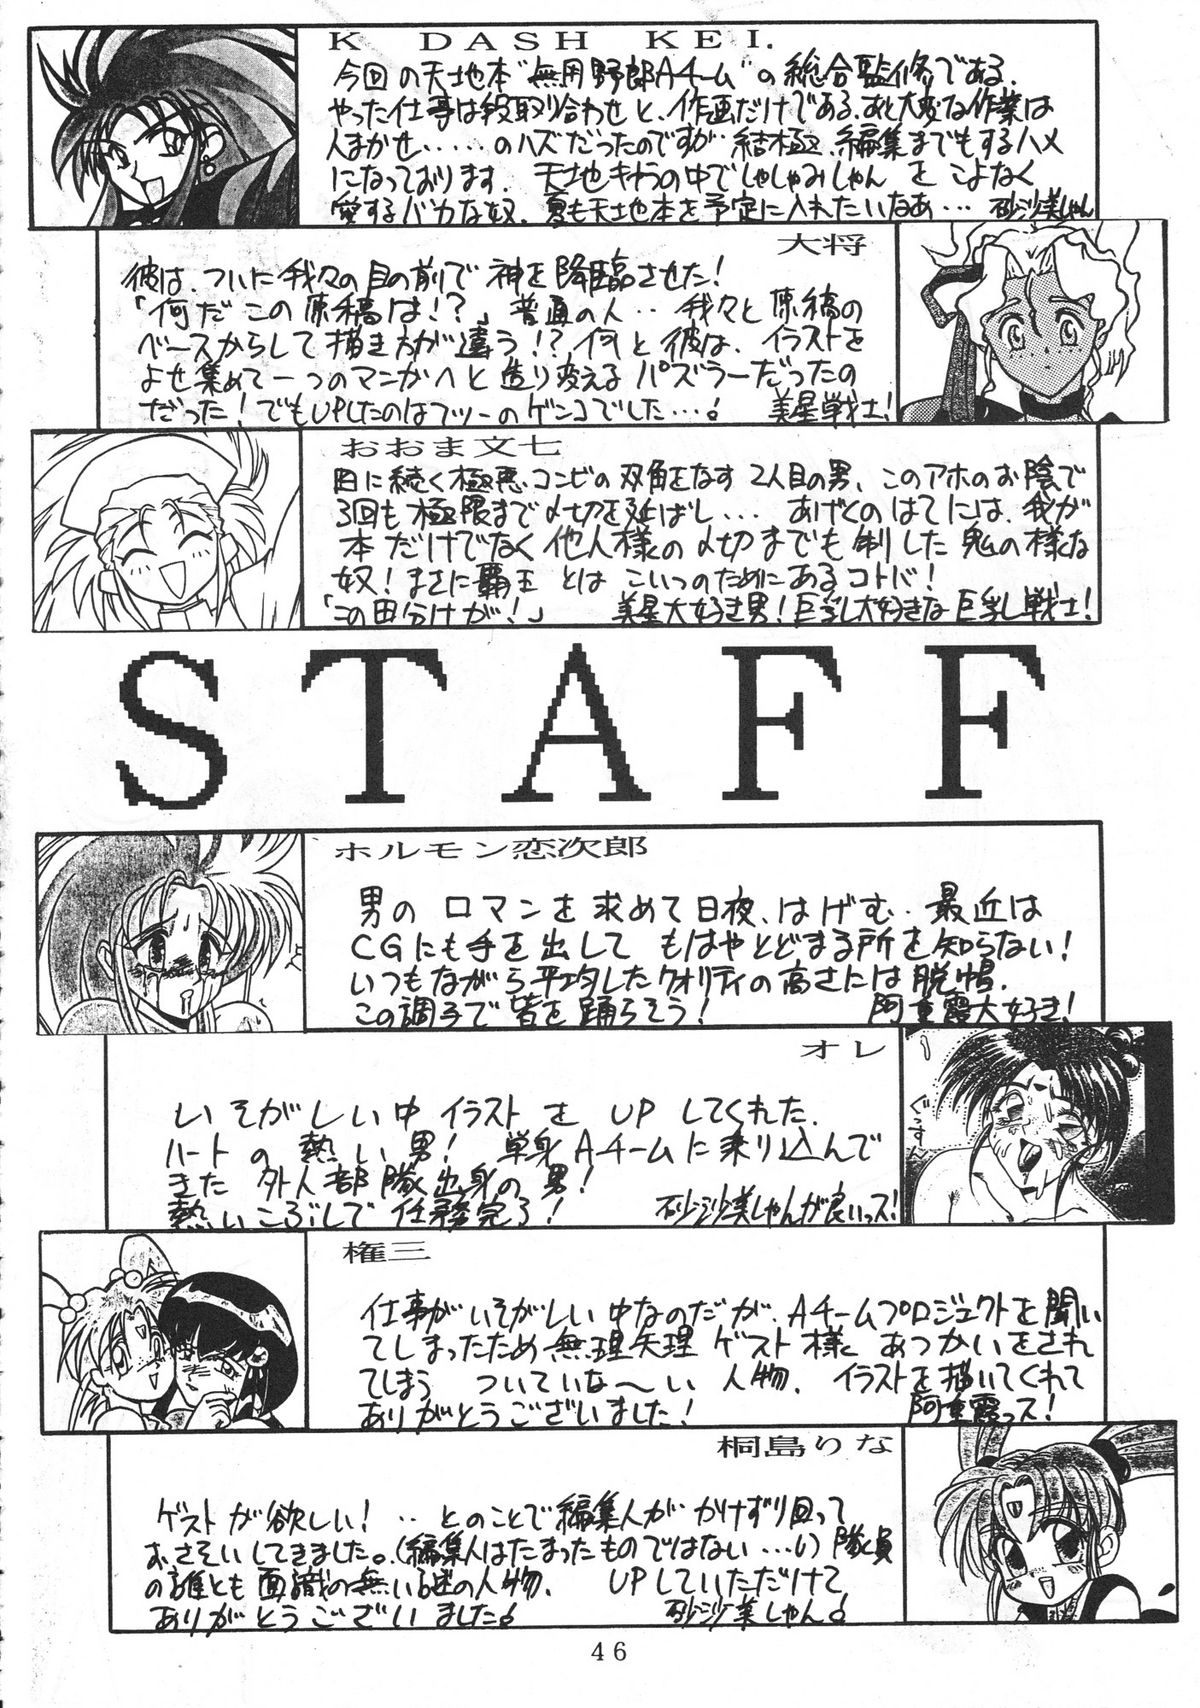 K DASH KEI.
今回の天地本"無用野郎Aチーム"の総合監修である。
やった仕事は段取り合わせと、作画だけである。あと大変な作業は
人まかせ、・・・・のハズだったのですが・・結極、編集までもするハメ
になっております。天地キャラの中でしゃしゃみしゃんをこよなく
愛するバカな奴。夏も天地本を予定に入れたいなあ・・・ 砂沙美しゃん
大将
彼は、ついに我々の目の前で神を降臨させた!
「何だこの原稿は!?」普通の人・・我々と原稿の
ベースからして描き方が違う!?何と彼は、イラストを
よせ集めて一つのマンガへと造り変えるパズラーだったの
だった!でもUPしたのはフツーのゲンコでした・・・! 美星戦士!
おおま文七
日に続く極悪コンビの双角をなす2人目の男、このアホのお陰で
3回も極限まで〆切を延ばし・・・ あげくのはてには、我が
本だけでなく他人様の〆切までも制した鬼の様な
奴!まさに覇王とはこいつのためにあるコトバ!
「この田分けが!」 美星大好き男!巨乳大好きな巨乳戦士!
STAFF
ホルモン恋次郎
男のロマンを求めて日夜、はげむ・最近は
CGにも手を出してもはやとどまる所を知らない!
いつもながら平均したクオリティの高さには脱帽。
この調子で皆を踊らそう! 阿重霞大好き!
オレ
いそがしい中イラストをUPしてくれた。
ハートの熱い男!単身Aチームに乗り込んで
きた外人部隊出身の男!
熱いこぶしで任務完了! 砂沙美しゃんが良いっス!
ぐっすん
権三
仕事がいそがしい中なのだが、Aチームプロジェクトを聞い
てしまったため無理矢理ゲスト様とあつかいをされ
てしまうついていな〜い人物。イラストを描いてくれて
ありがとうございました! 阿重霞っス!
桐島りな
ゲストが欲しい!・・とのことで編集人がかけずり回って
おさそいしてきました。(編集人はたまったものではない・・・い)隊員
の誰とも面識の無い謎の人物。 UPしていただけて
ありがとうございました! 砂沙美しゃん!
46